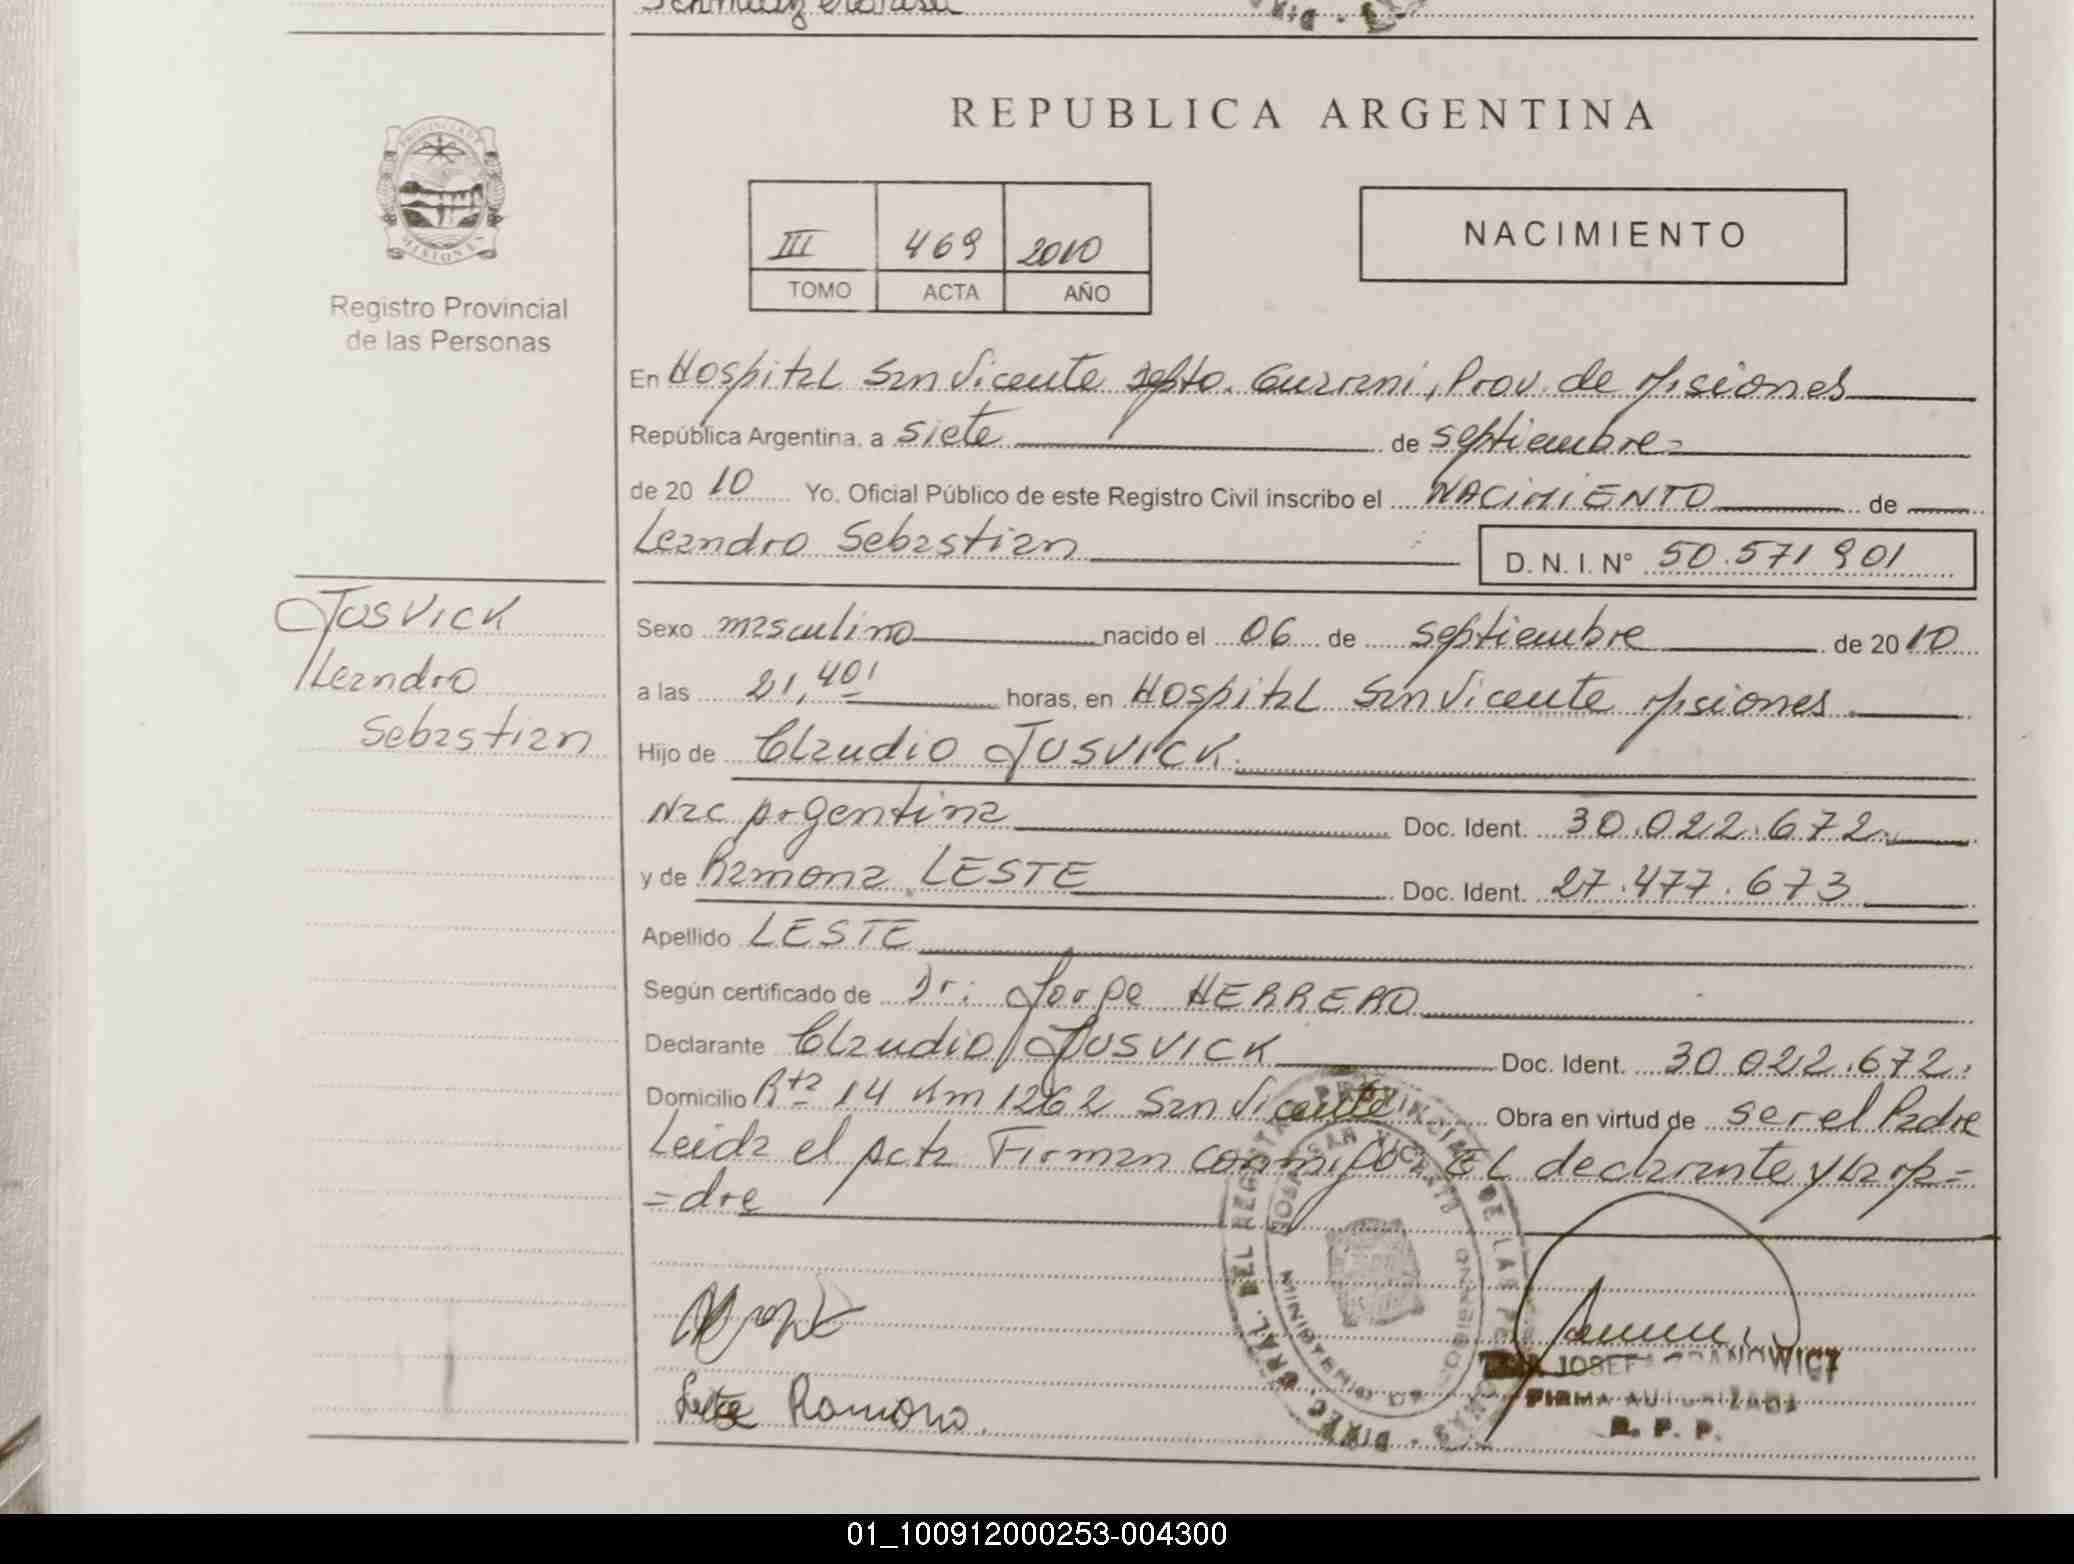 REPUBLICA ARGENTINA
PROVINCIA DE
MISIONES
Registro Provincial
de las Personas
III 469 2010
TOMO ACTA AÑO
NACIMIENTO
En Hospital San Vicente Depto. Guarani, Prov. de Misiones
República Argentina, a siete de septiembre=
de 2010 Yo, Oficial Público de este Registro Civil inscribo el NACIMIENTO de
Leandro Sebastian D. N. I. Nº 50.571901
JUSVICK
Leandro
Sebastian
Sexo masculino nacido el 06 de septiembre de 2010
a las 21,40' horas, en Hospital San Vicente Misiones
Hijo de Claudio JUSVICK.
Nac Argentina Doc. Ident. 30.022.672.
y de Ramona LESTE Doc. Ident. 27.477.673
Apellido LESTE
Según certificado de Dr: Jorge HERRERO
Declarante Claudio JUSVICK Doc. Ident. 30 022.672.
Domicilio Rta 14 Km 1262 San Vicente Obra en virtud de ser el Padre
Leida el Acta Firman conmigo EL declarante y la Ma=
=dre
DIREC. GRAL. DEL REGISTRO PROVINCIAL DE LAS PERSONAS
HOSP. SAN VICENTE
MINISTERIO DE GOBIERNO
Leste Ramona.
JOSEFA GRANOWICZ
FIRMA AUTORIZADA
R. P. P.
01_100912000253-004300